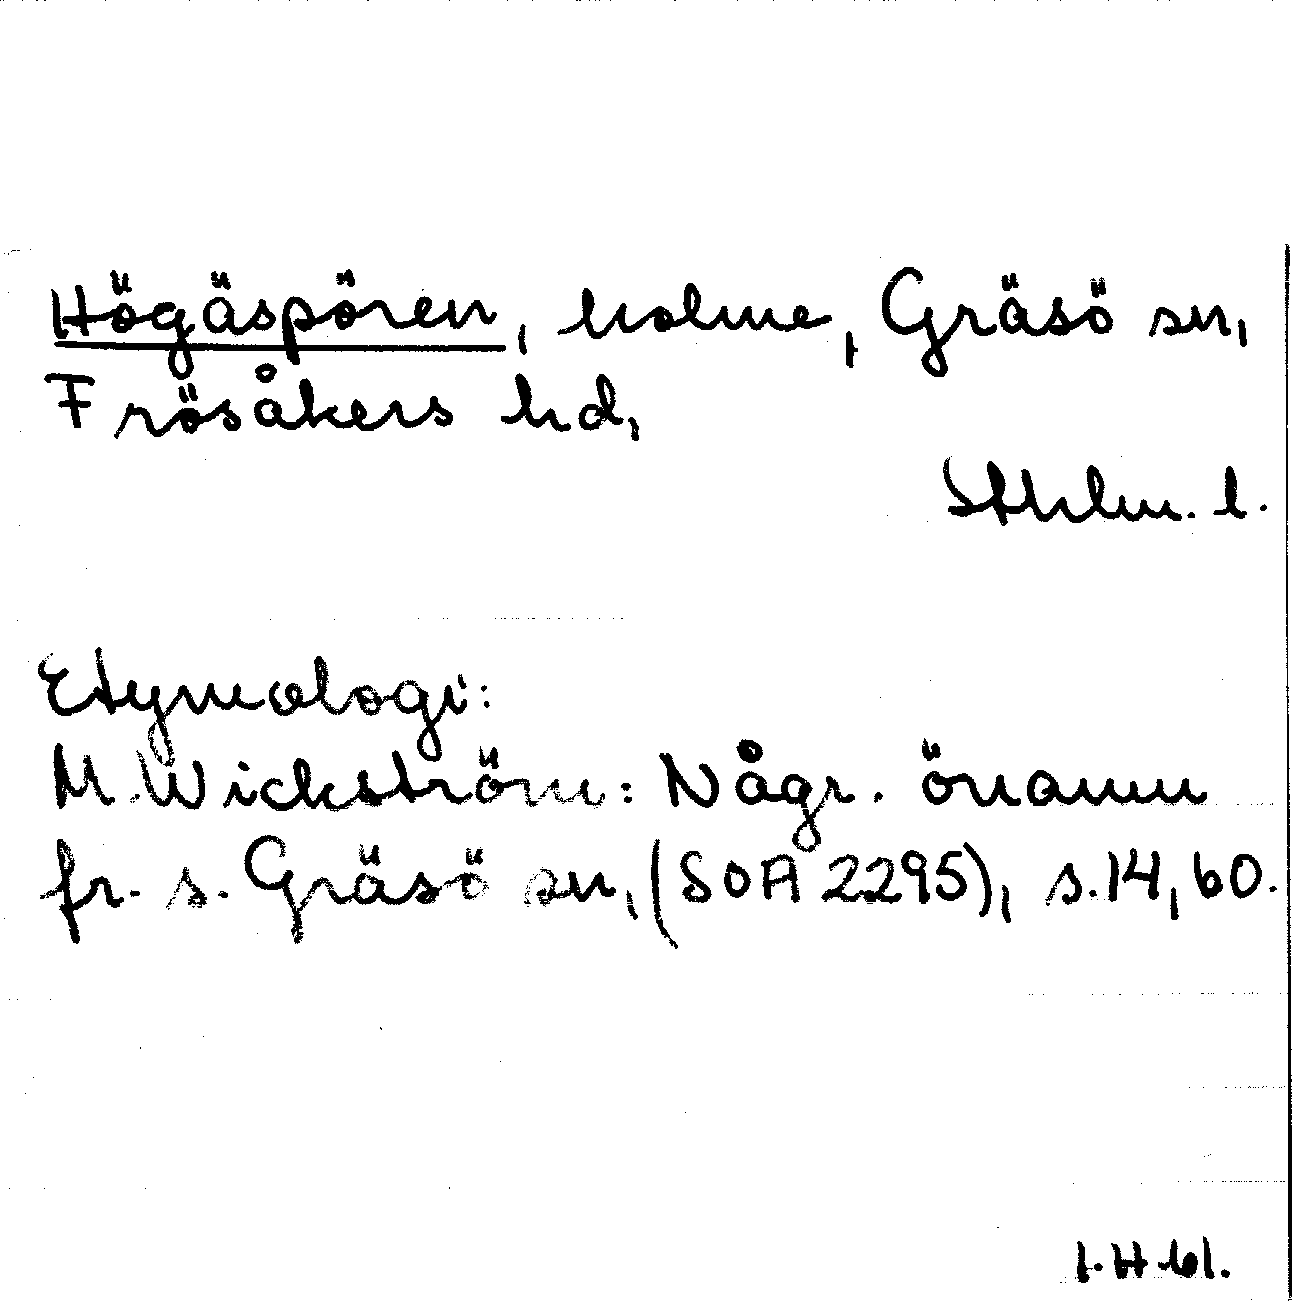 Högäspören, holme, Gräsö sn,
Frösåkers hd,
Sthlm. l.
Etymologi:
M. Wickström: Någr. önamn
fr. s. Gräsö sn, (SOA 2295), s. 14, 60.
I. H. 61.